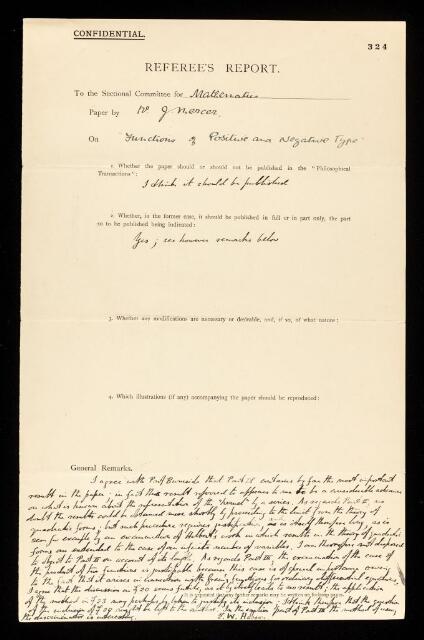 CONFIDENTIAL.
324
REFEREE'S REPORT.
To the Sectional Committee for Mathematics
Paper by Mr J Mercer.
On "Functions of Positive and Negative Type"
1. Whether the paper should or should not be published in the "Philosophical
Transactions":
I think it should be published
2. Whether, in the former case, it should be published in full or in part only, the part
so to be published being indicated:
Yes; see however remarks below
3. Whether any modifications are necessary or desirable, and, if so, of what nature:
4. Which illustrations (if any) accompanying the paper should be reproduced:
General Remarks.
I agree with Prof Burnside that Part II contains by far the most important
result in the paper; in fact the result referred to appears to me to be a considerable advance
on what is known about the representation of the "kernel" by a series. As regards Part II, no
doubt the results could be obtained more shortly by proceeding to the limit from the theory of
quadratic forms; but such procedure requires justification, as is
seen for example by an examination of Hilbert's work in which results in the theory of quadratic
forms are extended to the case of an infinite number of variables. I am therefore not disposed
to object to Part II on account of its length. As regards Part III, the examination of the case of
the product of two functions is justifiable because this case is of special importance owing
to the fact that it arises in connection with Green's functions for ordinary differential equations.
I agree that the discussion in § 30
of the method in § 33 may
of the inclusion of § 09 might be left to the author. In the
the discussion is interesting. E. W. Hobson.